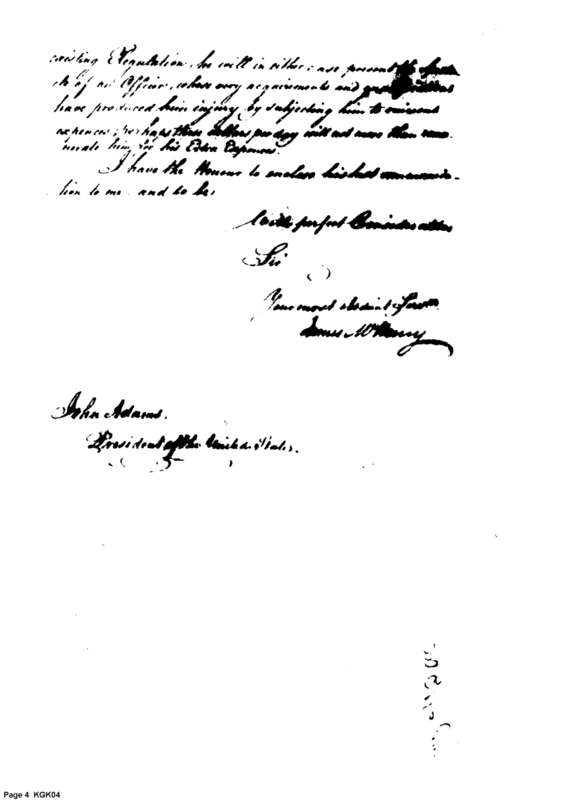 existing Regulation, he will in either case present the specta
cle of an Officer, whose very acquirements and qualifications
have produced him injury by subjecting him to
expences; perhaps three dollars per day will not more than remu-
nerate him for his Extra Expences.
I have the Honour to enclose his last communica-
tion to me. and to be,
With perfect Consideration
Sir
Your most obedient Servt
James McHenry
John Adams.
President of the United States.
Page 4 KGK04